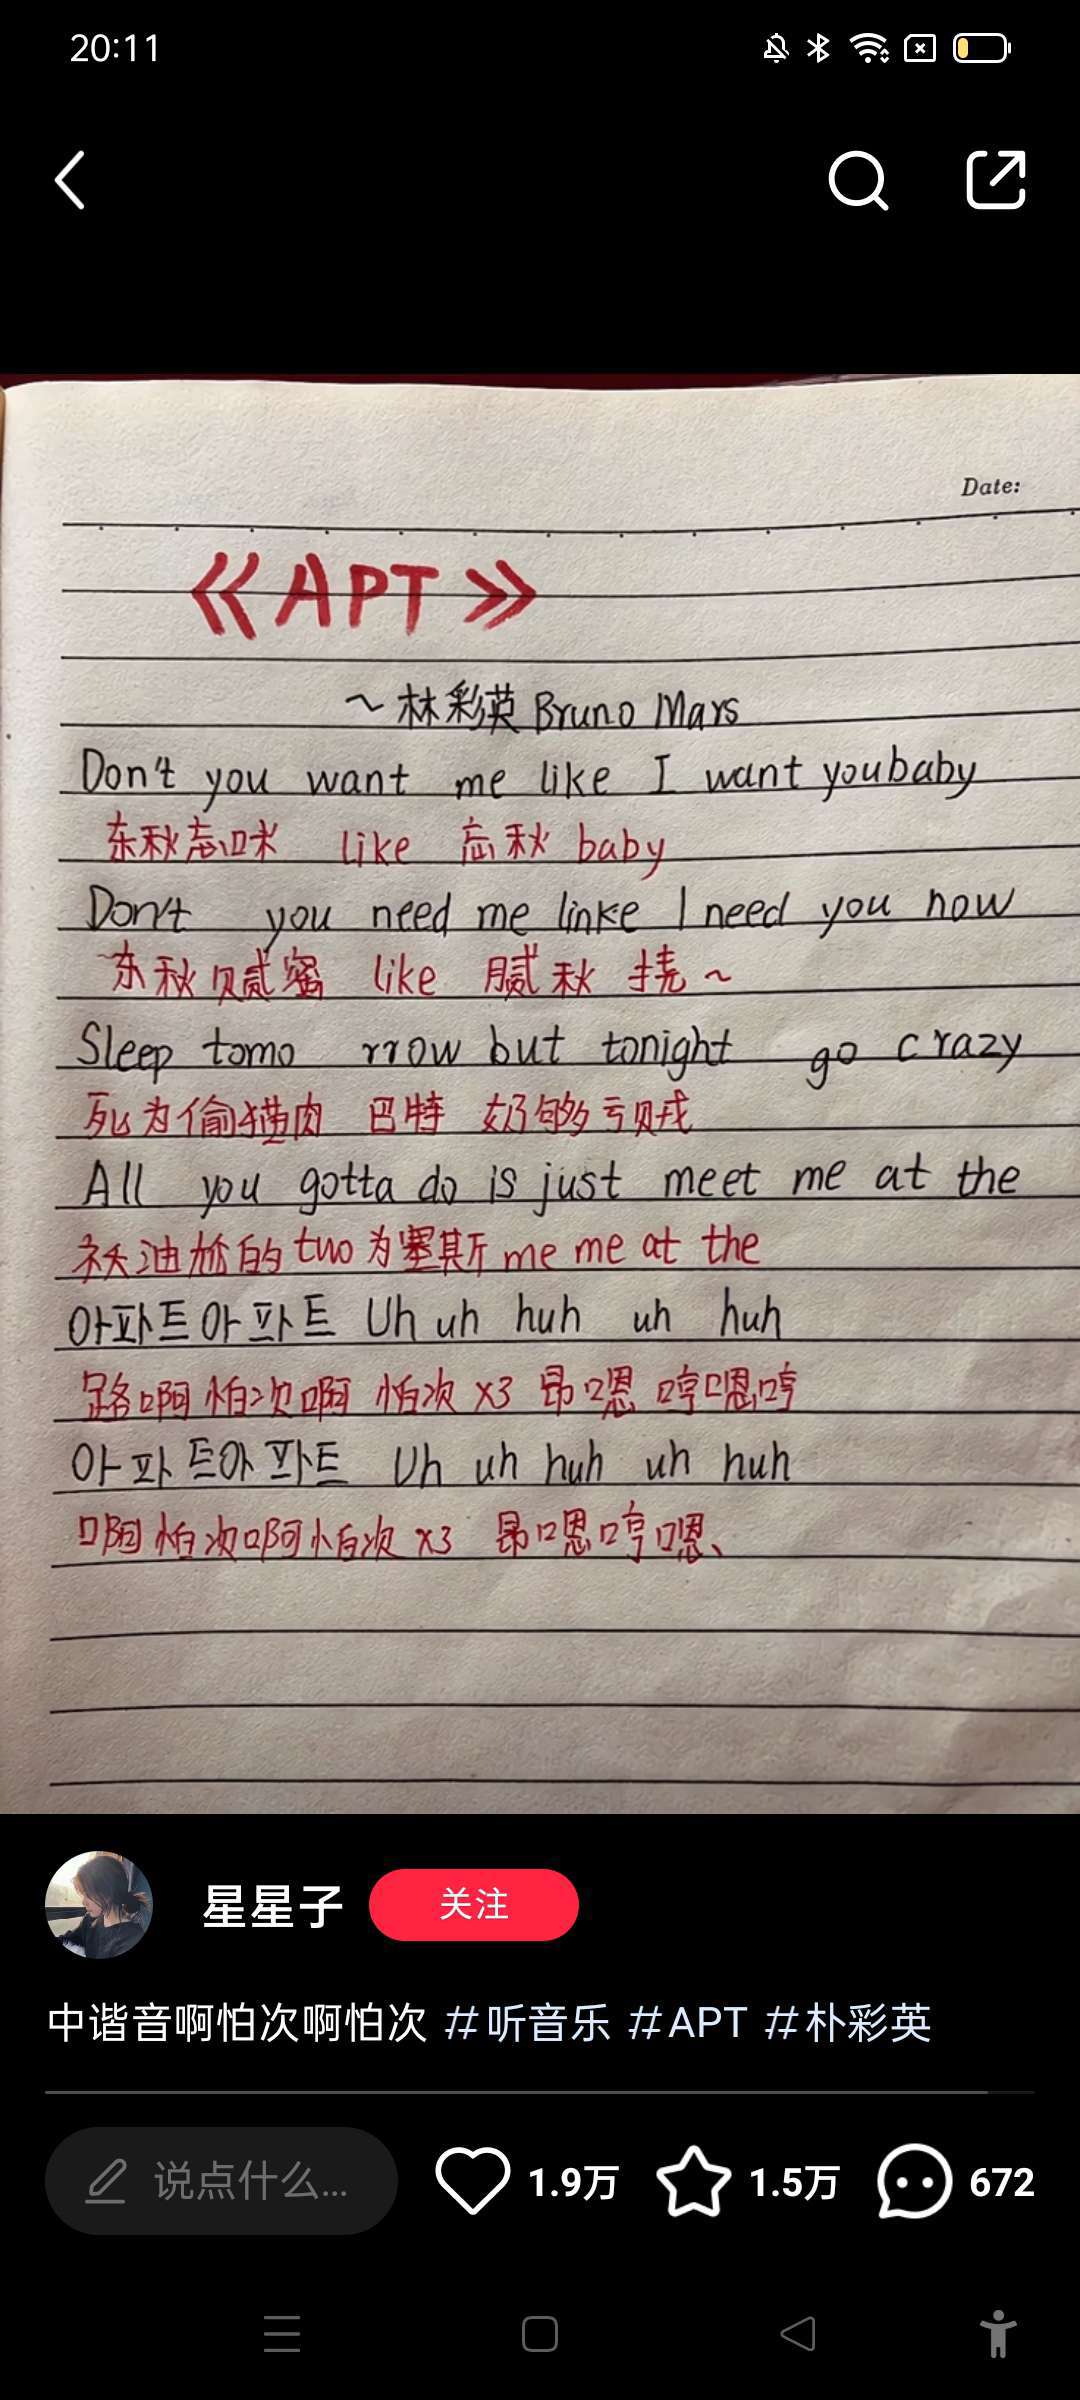 20:11
Date:
《APT》
~林彩英 Bruno Mars
Don't you want me like I want you baby
东秋忘咪 like 忘秋 baby
Don't you need me linke I need you now
东秋贼蜜 like 腻秋 挠~
Sleep tomo rrow but tonight go crazy
死为偷猫肉 巴特 奶够亏贼
All you gotta do is just meet me at the
袄油尬的 two 为塞斯 me me at the
아파트아파트 Uh uh huh uh huh
啊怕次啊 怕次 x3 昂嗯 哼嗯哼
아파트아파트 Uh uh huh uh huh
啊怕次啊怕次 x3 昂嗯哼嗯、
星星子 关注
中谐音啊怕次啊怕次 #听音乐 #APT #朴彩英
说点什么... 1.9万 1.5万 672